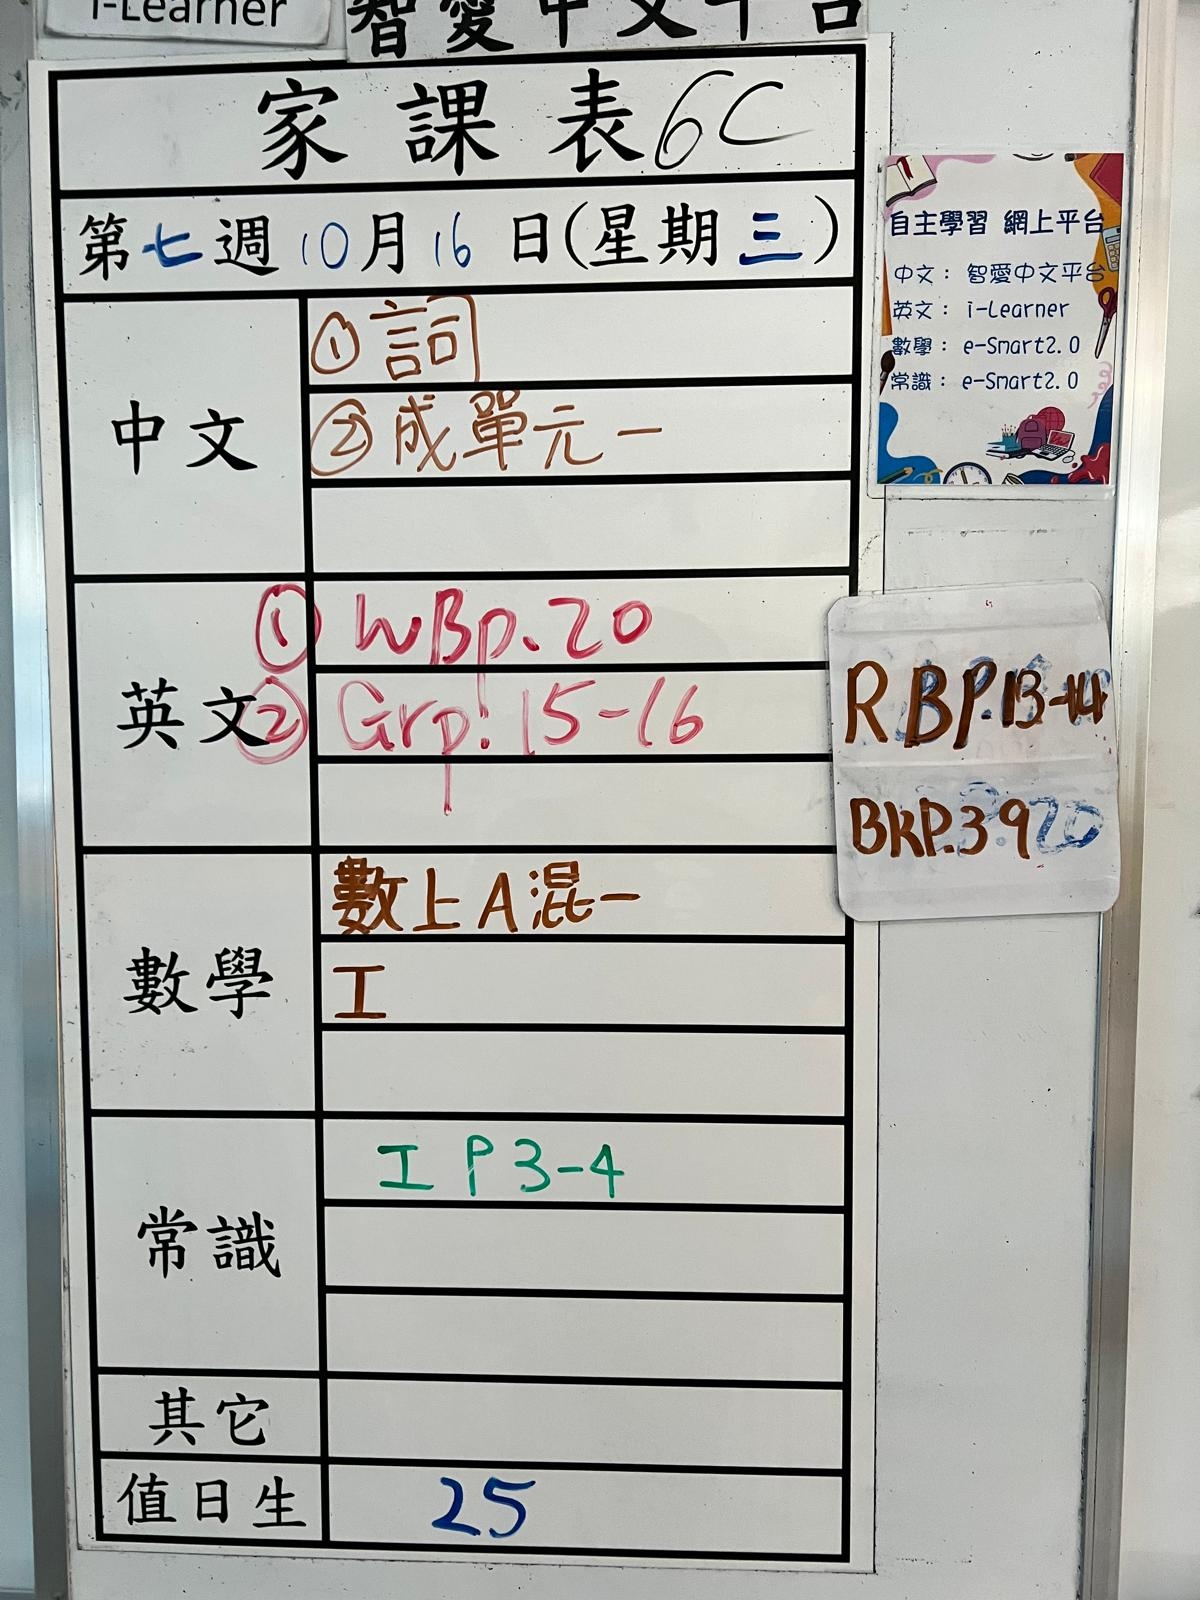 i-Learner
智愛中文平台
家課表 6C
第七週 10月16日(星期三)
中文
① 詞
② 成單元一
英文
① WBp.20
② Grp. 15-16
數學
數上A混一
工
常識
工 P3-4
其它
值日生
25
自主學習 網上平台
中文： 智愛中文平台
英文： i-Learner
數學： e-Smart2.0
常識： e-Smart2.0
RBP.13-14
BKP.39